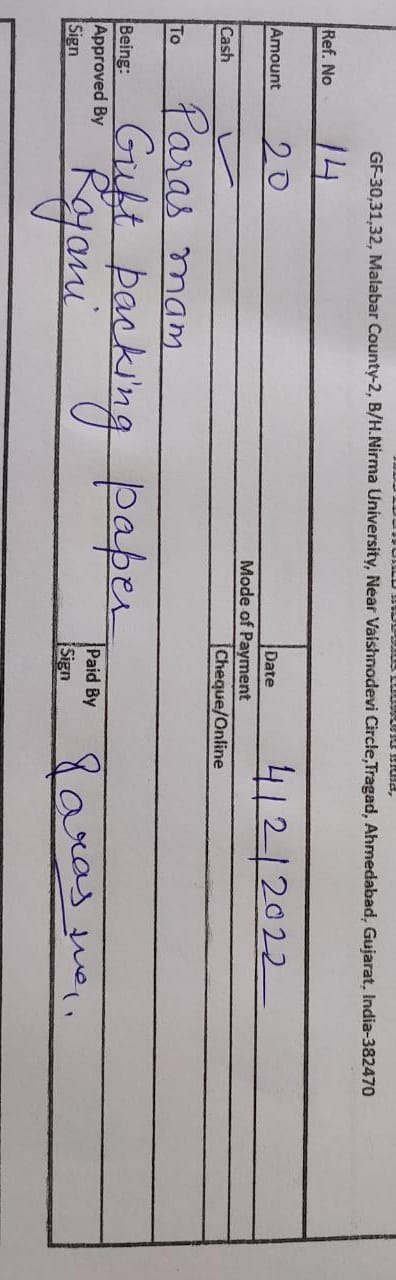 GF-30,31,32, Malabar County-2, B/H.Nirma University, Near Vaishnodevi Circle,Tragad, Ahmedabad, Gujarat, India-382470
Ref. No 14
Amount 20 Date 4/2/2022
Mode of Payment
Cash ✓ Cheque/Online
To Paras mam
Being: Gift packing paper
Approved By Rajani Paid By Paras
Sign Sign